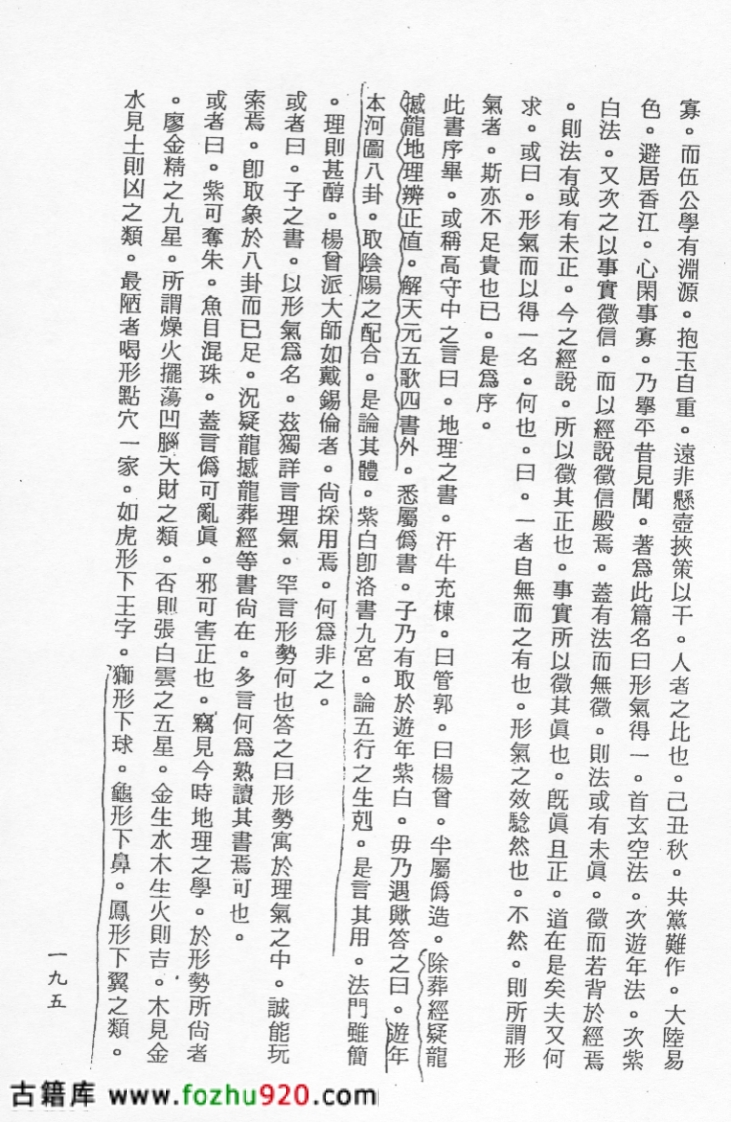 寡。而伍公學有淵源。抱玉自重。遠非懸壺挾策以干。人者之比也。己丑秋。共黨難作。大陸易
色。避居香江。心閑事寡。乃舉平昔見聞。著爲此篇名曰形氣得一。首玄空法。次遊年法。次紫
白法。又次之以事實徵信。而以經說徵信殿焉。蓋有法而無徵。則法或有未眞。徵而若背於經焉
。則法有或有未正。今之經說。所以徵其正也。事實所以徵其眞也。旣眞且正。道在是矣夫又何
求。或曰。形氣而以得一名。何也。曰。一者自無而之有也。形氣之效騐然也。不然。則所謂形
氣者。斯亦不足貴也已。是爲序。
此書序畢。或稱高守中之言曰。地理之書。汗牛充棟。曰管郭。曰楊曾。半屬僞造。除葬經疑龍
撼龍地理辨正直。解天元五歌四書外。悉屬僞書。子乃有取於遊年紫白。毋乃過歟答之曰。遊年
本河圖八卦。取陰陽之配合。是論其體。紫白卽洛書九宮。論五行之生剋。是言其用。法門雖簡
。理則甚醇。楊曾派大師如戴錫倫者。尙採用焉。何爲非之。
或者曰。子之書。以形氣爲名。茲獨詳言理氣。罕言形勢何也答之曰形勢寓於理氣之中。誠能玩
索焉。卽取象於八卦而已足。況疑龍撼龍葬經等書尙在。多言何爲熟讀其書焉可也。
或者曰。紫可奪朱。魚目混珠。蓋言僞可亂眞。邪可害正也。竊見今時地理之學。於形勢所尙者
。廖金精之九星。所謂燥火擺蕩凹腦大財之類。否則張白雲之五星。金生水木生火則吉。木見金
水見土則凶之類。最陋者喝形點穴一家。如虎形下王字。獅形下球。龜形下鼻。鳳形下翼之類。
一九五
古籍库 www.fozhu920.com